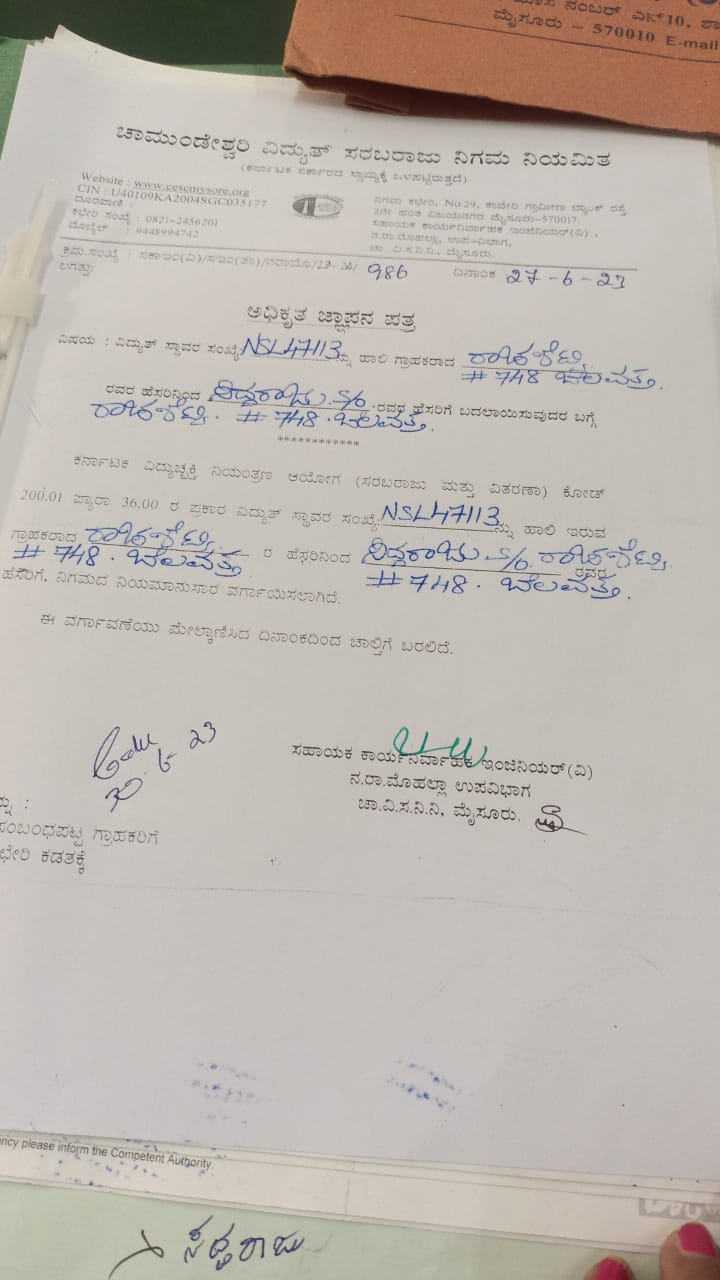 ನಂಬರ್ ಎನ್10,
ಮೈಸೂರು – 570010 E-mail
ಚಾಮುಂಡೇಶ್ವರಿ ವಿದ್ಯುತ್ ಸರಬರಾಜು ನಿಗಮ ನಿಯಮಿತ
(ಕರ್ನಾಟಕ ಸರ್ಕಾರದ ಸ್ವಾಮ್ಯಕ್ಕೆ ಒಳಪಟ್ಟಿರುತ್ತದೆ)
Website : www.cescmysore.org
CIN : U40109KA2004SGC035177
ದೂರವಾಣಿ :
ಕಛೇರಿ ಸಂಖ್ಯೆ : 0821-2456201
ಮೊಬೈಲ್ : 9448994742
ನಿಗಮ ಕಛೇರಿ, No.29, ಕಾವೇರಿ ಗ್ರಾಮೀಣ ಬ್ಯಾಂಕ್ ರಸ್ತೆ
2ನೇ ಹಂತ ವಿಜಯನಗರ ಮೈಸೂರು-570017.
ಸಹಾಯಕ ಕಾರ್ಯನಿರ್ವಾಹಕ ಇಂಜಿನಿಯರ್(ವಿ) ,
ನ.ರಾ.ಮೊಹಲ್ಲಾ, ಉಪ-ವಿಭಾಗ,
ಚಾ .ವಿ.ಸ.ನಿ.ನಿ., ಮೈಸೂರು.
ಕ್ರಮ.ಸಂಖ್ಯೆ : ಸಕಾಇಂ(ವಿ)/ಸಇಂ(ತಾ)/ನರಾಮೊ/23-24/ 986 ದಿನಾಂಕ 27-6-23
ಲಗತ್ತು:
ಅಧಿಕೃತ ಜ್ಞಾಪನ ಪತ್ರ
ವಿಷಯ : ವಿದ್ಯುತ್ ಸ್ಥಾವರ ಸಂಖ್ಯೆ:NSL47113ನ್ನು ಹಾಲಿ ಗ್ರಾಹಕರಾದ
#748 ಬೆಲವತ್ತ.
ರವರ ಹೆಸರಿನಿಂದ ಸಿದ್ದರಾಜು S/o ರವರ ಹೆಸರಿಗೆ ಬದಲಾಯಿಸುವುದರ ಬಗ್ಗೆ
#748. ಬೆಲವತ್ತ.
************
ಕರ್ನಾಟಕ ವಿದ್ಯುಚ್ಛಕ್ತಿ ನಿಯಂತ್ರಣ ಆಯೋಗ (ಸರಬರಾಜು ಮತ್ತು ವಿತರಣಾ) ಕೋಡ್
200.01 ಪ್ಯಾರಾ 36.00 ರ ಪ್ರಕಾರ ವಿದ್ಯುತ್ ಸ್ಥಾವರ ಸಂಖ್ಯೆ:NSL47113ನ್ನು ಹಾಲಿ ಇರುವ
ಗ್ರಾಹಕರಾದ ರ ಹೆಸರಿನಿಂದ ಸಿದ್ದರಾಜು S/o.
#748. ಬೆಲವತ್ತ #748. ಬೆಲವತ್ತ. ರವರ
ಹೆಸರಿಗೆ, ನಿಗಮದ ನಿಯಮಾನುಸಾರ ವರ್ಗಾಯಿಸಲಾಗಿದೆ.
ಈ ವರ್ಗಾವಣೆಯು ಮೇಲ್ಕಾಣಿಸಿದ ದಿನಾಂಕದಿಂದ ಚಾಲ್ತಿಗೆ ಬರಲಿದೆ.
ಸಹಾಯಕ ಕಾರ್ಯನಿರ್ವಾಹಕ ಇಂಜಿನಿಯರ್(ವಿ)
ನ.ರಾ.ಮೊಹಲ್ಲಾ ಉಪವಿಭಾಗ
ಚಾ.ವಿ.ಸ.ನಿ.ನಿ, ಮೈಸೂರು.
ಸಂಬಂಧಪಟ್ಟ ಗ್ರಾಹಕರಿಗೆ
ಛೇರಿ ಕಡತಕ್ಕೆ
ncy please inform the Competent Authority
ಸಿದ್ದರಾಜು